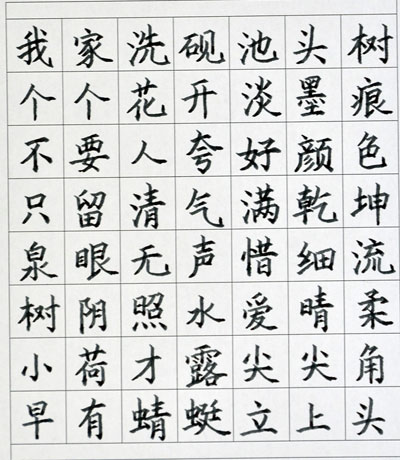 我家洗砚池头树
个个花开淡墨痕
不要人夸好颜色
只留清气满乾坤
泉眼无声惜细流
树阴照水爱晴柔
小荷才露尖尖角
早有蜻蜓立上头